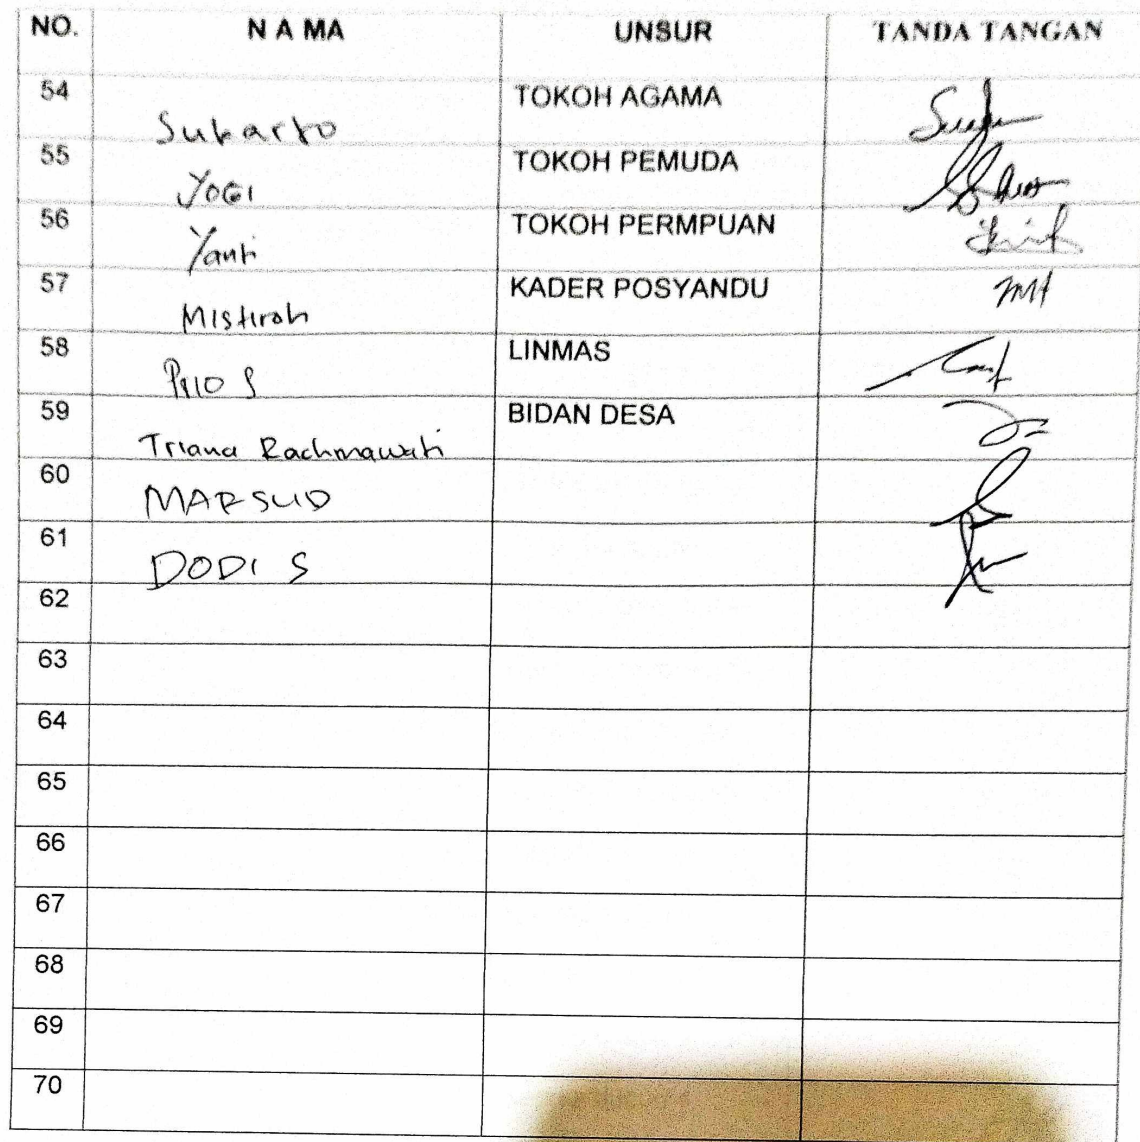 NO. N A MA UNSUR TANDA TANGAN
54 Sukarto TOKOH AGAMA
55 YOGI TOKOH PEMUDA
56 Yanti TOKOH PERMPUAN
57 Mistiroh KADER POSYANDU
58 PRIO S LINMAS
59 Triana Rachmawati BIDAN DESA
60 MARSUD
61 DODI S
62
63
64
65
66
67
68
69
70